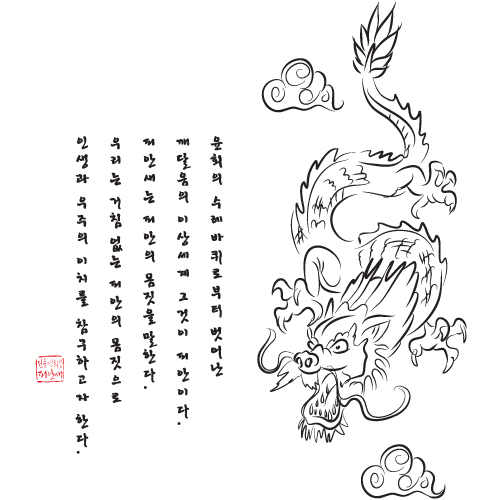 윤회의 수레바퀴로부터 벗어난
깨달음의 이상세계 그것이 피안이다.
피안새는 피안의 몸짓을 말한다.
우리는 거침 없는 피안의 몸짓으로
인생과 우주의 이치를 참구하고자 한다.